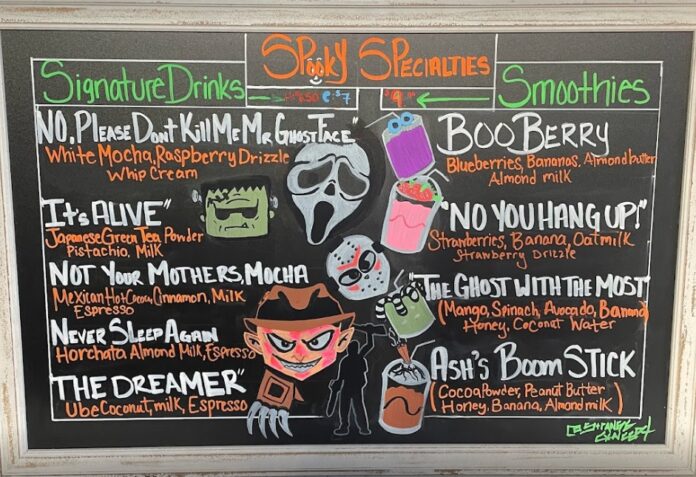 SPOOKY SPECIALTIES
Signature Drinks
$7
$9
Smoothies
NO, PLEASE DONT KILL ME MR GHOSTFACE"
White Mocha, Raspberry Drizzle
Whip Cream
It's ALIVE"
Japanese Green Tea Powder
Pistachio, Milk
NOT YOUR MOTHERS, MOCHA
Mexican Hot Cocoa, Cinnamon, Milk
Espresso
NEVER SLEEP AGAIN
Horchata Almond Milk, Espresso
THE DREAMER"
Ube Coconut, milk, Espresso
BOO BERRY
Blueberries, Bananas, Almond butter
Almond milk
"NO YOU HANG UP!"
Strawberries, Banana, Oatmilk
Strawberry Drizzle
"THE GHOST WITH THE MOST
(Mango, Spinach, Avocado, Banana
Honey, Coconut Water
ASH'S BOOM STICK
(Cocoa Powder, Peanut Butter
Honey, Banana, Almond milk)